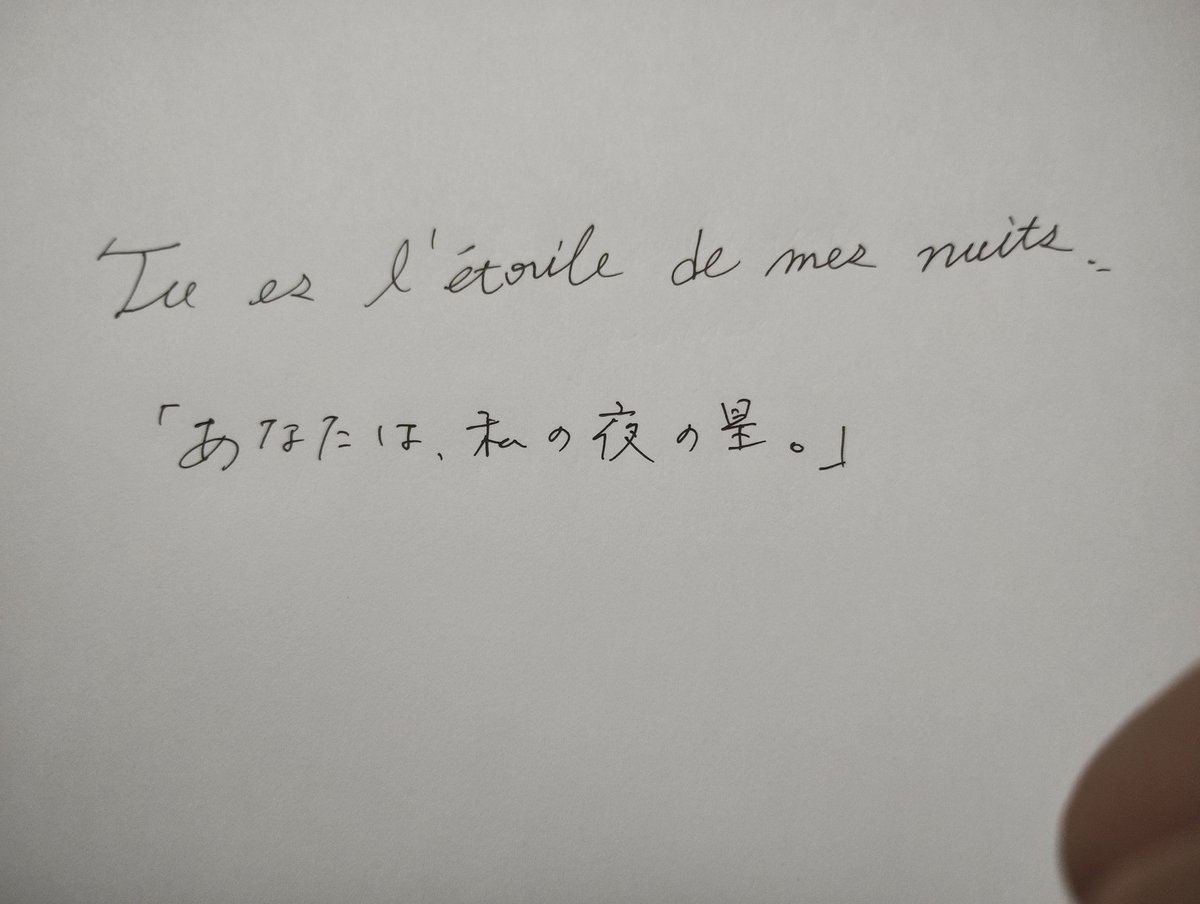 Tu es l'étoile de mes nuits.
「あなたは、私の夜の星。」